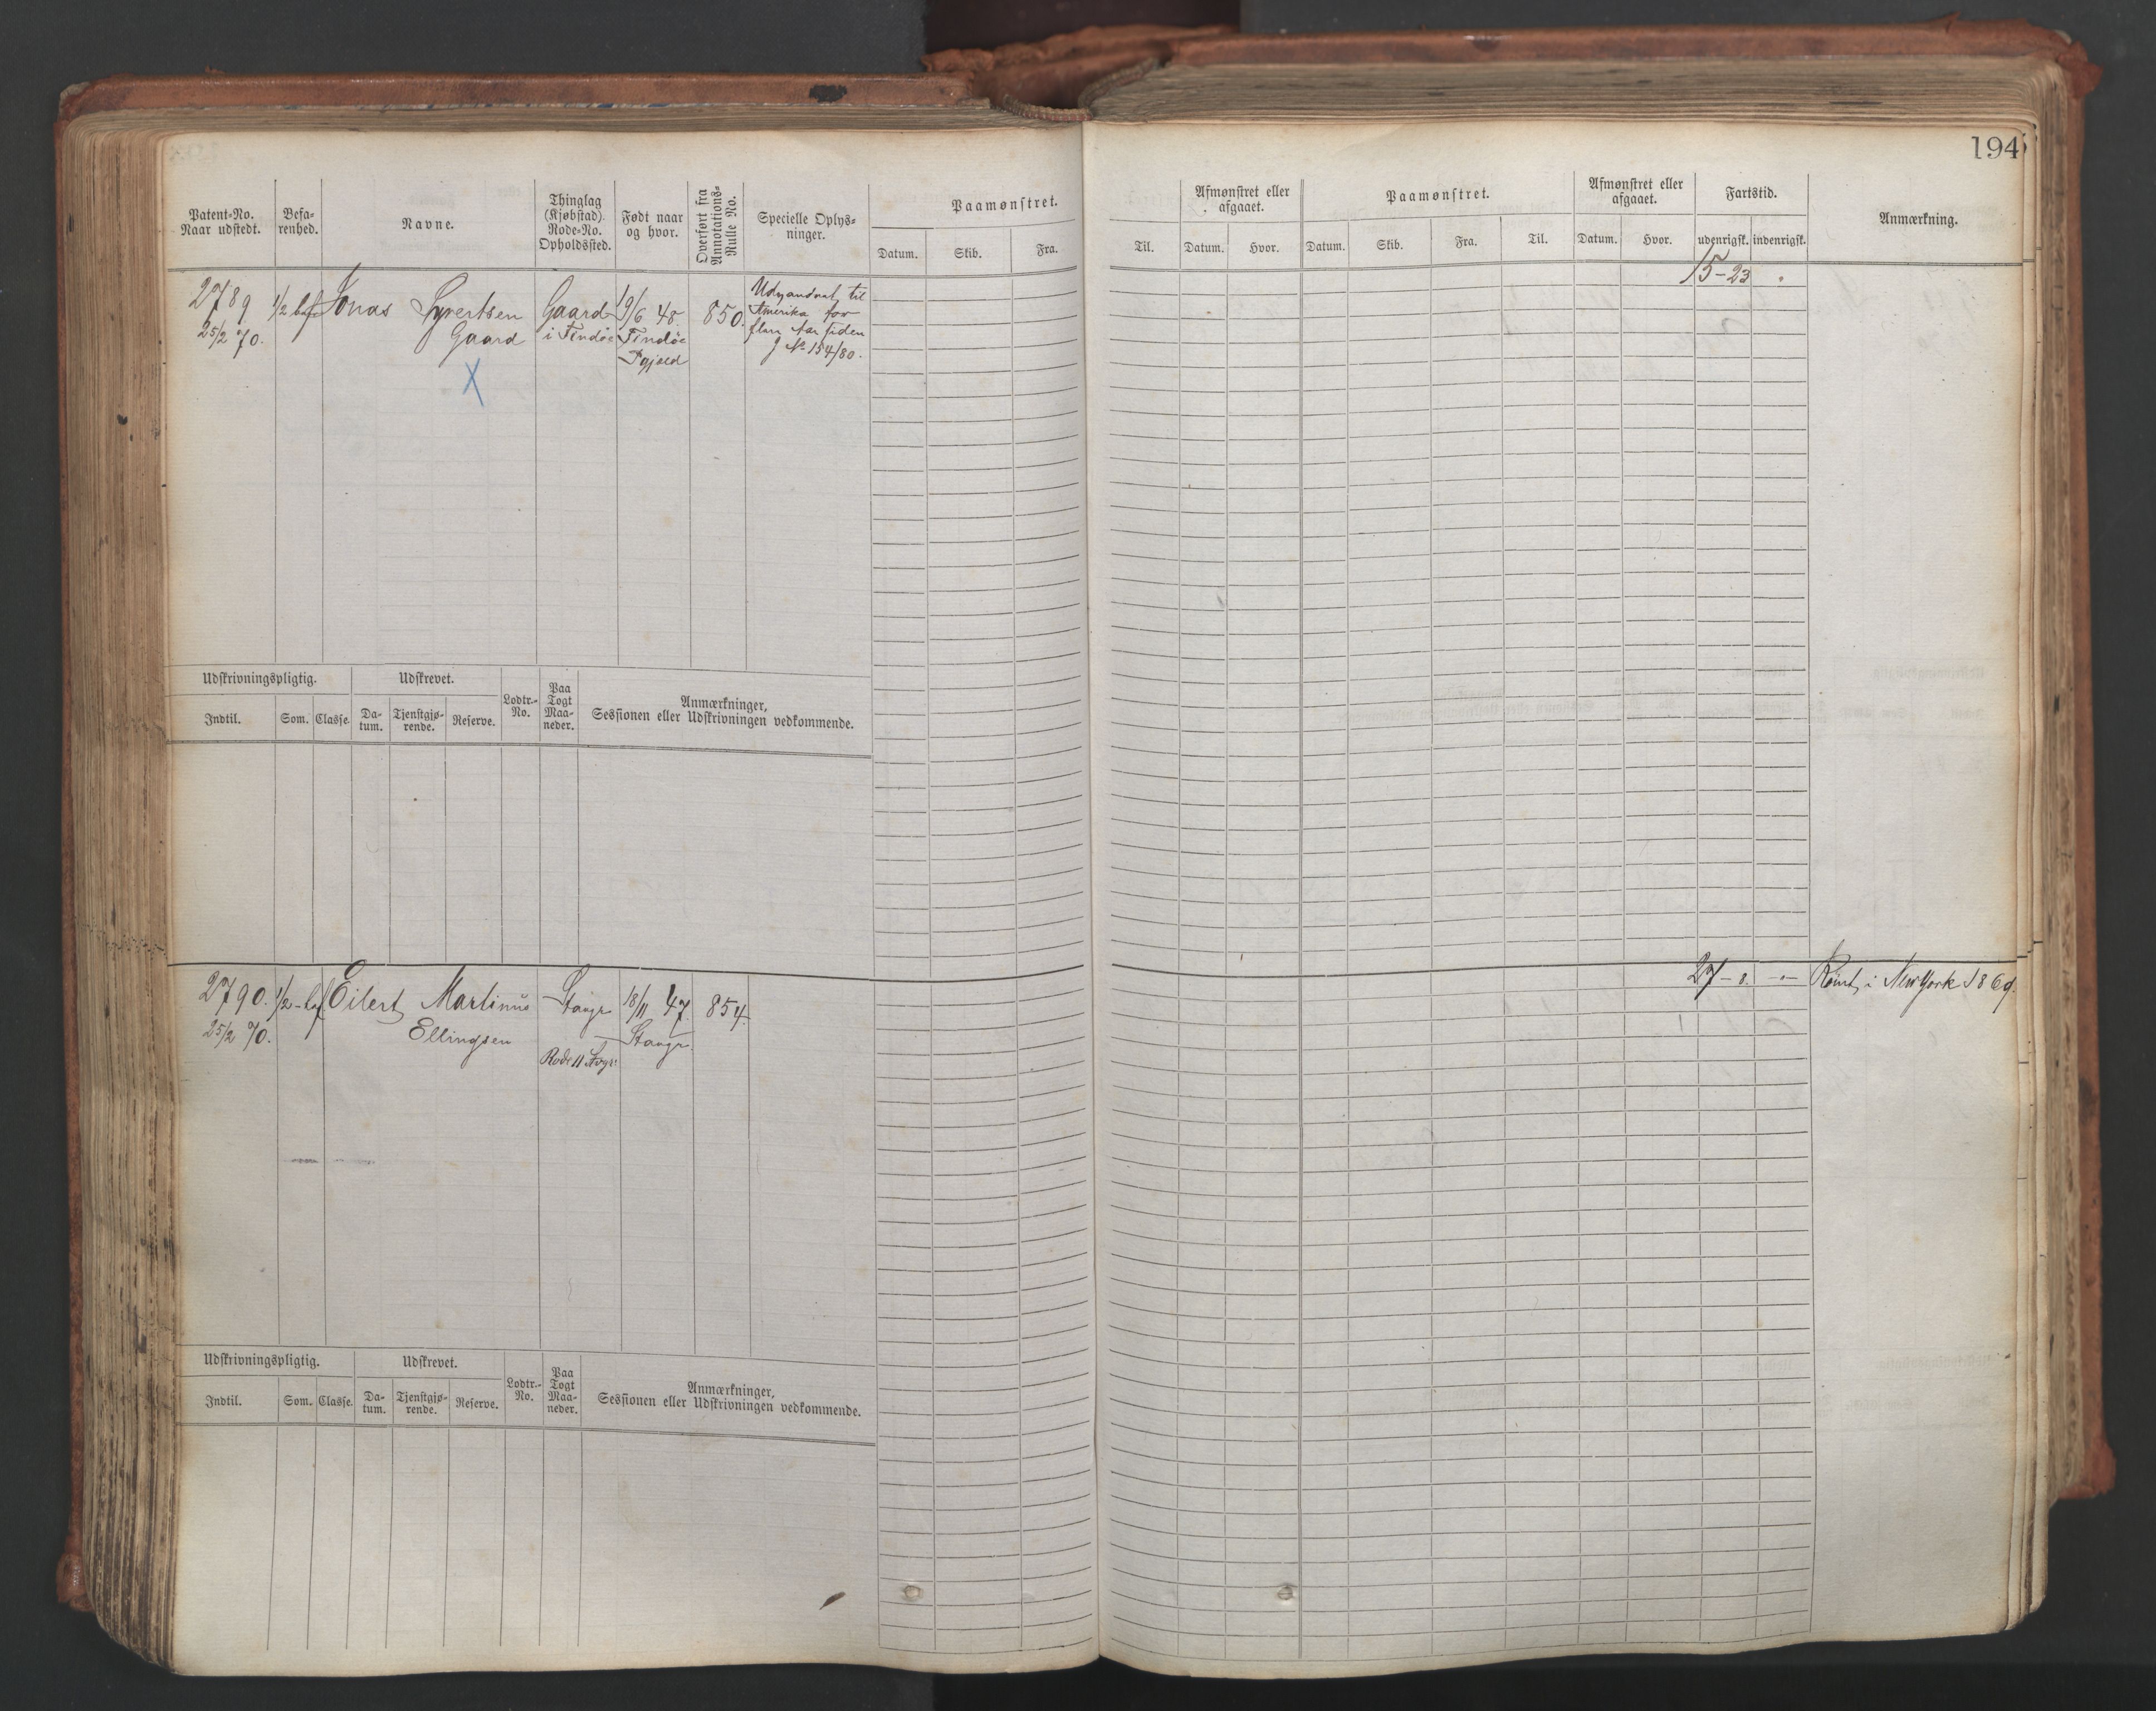 194
Patent-No.
Naar udstedt.
Befa-
renhed.
Navne.
Thinglag
(Kjøbstad).
Rode-No.
Opholdssted.
Født naar
og hvor.
Overført fra
Annotations-
Rulle No.
Specielle Oplys-
ninger.
Paamønstret.
Datum.
Skib.
Fra.
Til.
Afmønstret eller
afgaaet.
Datum.
Hvor.
Paamønstret.
Datum.
Skib.
Fra.
Til.
Afmønstret eller
afgaaet.
Datum.
Hvor.
Fartstid.
udenrigsk.
indenrigsk.
Anmærkning.
2789
25/2 70.
1/2 bef
Jonas Syvertsen
Gaard
X
Gaard
i Findöe
19/6 48.
Findöe
Pgjeld
850.
Udvandret til
Amerika for
flere Aar siden
J No 154/80.
15-23
Udskrivningspligtig.
Indtil.
Som.
Classe.
Udskrevet.
Da-
tum.
Tjenstgjø-
rende.
Reserve.
Lodtr.-
No.
Paa
Togt
Maa-
neder.
Anmærkninger,
Sessionen eller Udskrivningen vedkommende.
2790.
25/2 70.
1/2-bef
Eilert Martinus
Ellingsen
Stavgr
Rode 11
18/11 47.
Stavgr.
854.
27-8.
Rømt i New York 1869.
Udskrivningspligtig.
Indtil.
Som.
Classe.
Udskrevet.
Da-
tum.
Tjenstgjø-
rende.
Reserve.
Lodtr.-
No.
Paa
Togt
Maa-
neder.
Anmærkninger,
Sessionen eller Udskrivningen vedkommende.